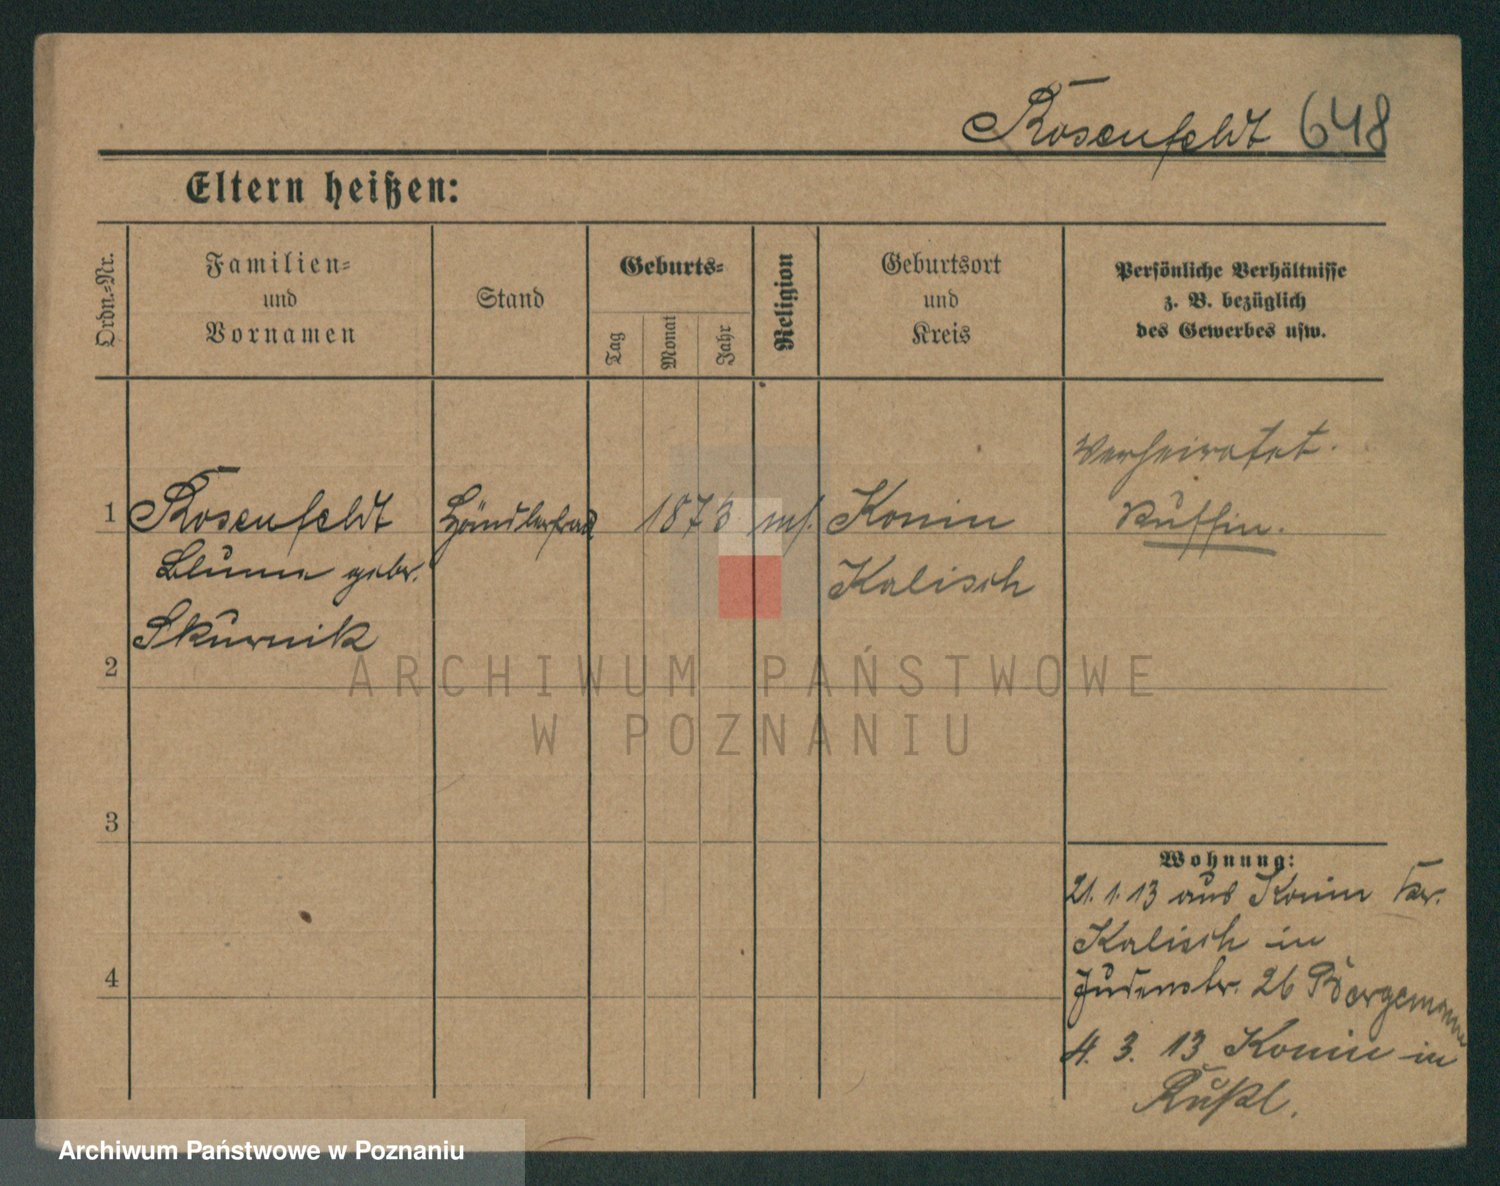 Rosenfeldt 648
Eltern heißen:
Ordn.-Nr.
Familien-
und
Vornamen
Stand
Geburts-
Tag
Monat
Jahr
Religion
Geburtsort
und
Kreis
Persönliche Verhältnisse
z. B. bezüglich
des Gewerbes usw.
1
Rosenfeldt
Blume geber.
Skurnik
Händlerfrau
1873
ms.
Konin
Kalisch
Verheiratet.
Russin.
2
3
4
Wohnung:
21. 1. 13 aus Konin Kr.
Kalisch in
Judenstr. 26 Bergemann
4. 3. 13 Konin in
Rußl.
ARCHIWUM PAŃSTWOWE
W POZNANIU
Archiwum Państwowe w Poznaniu